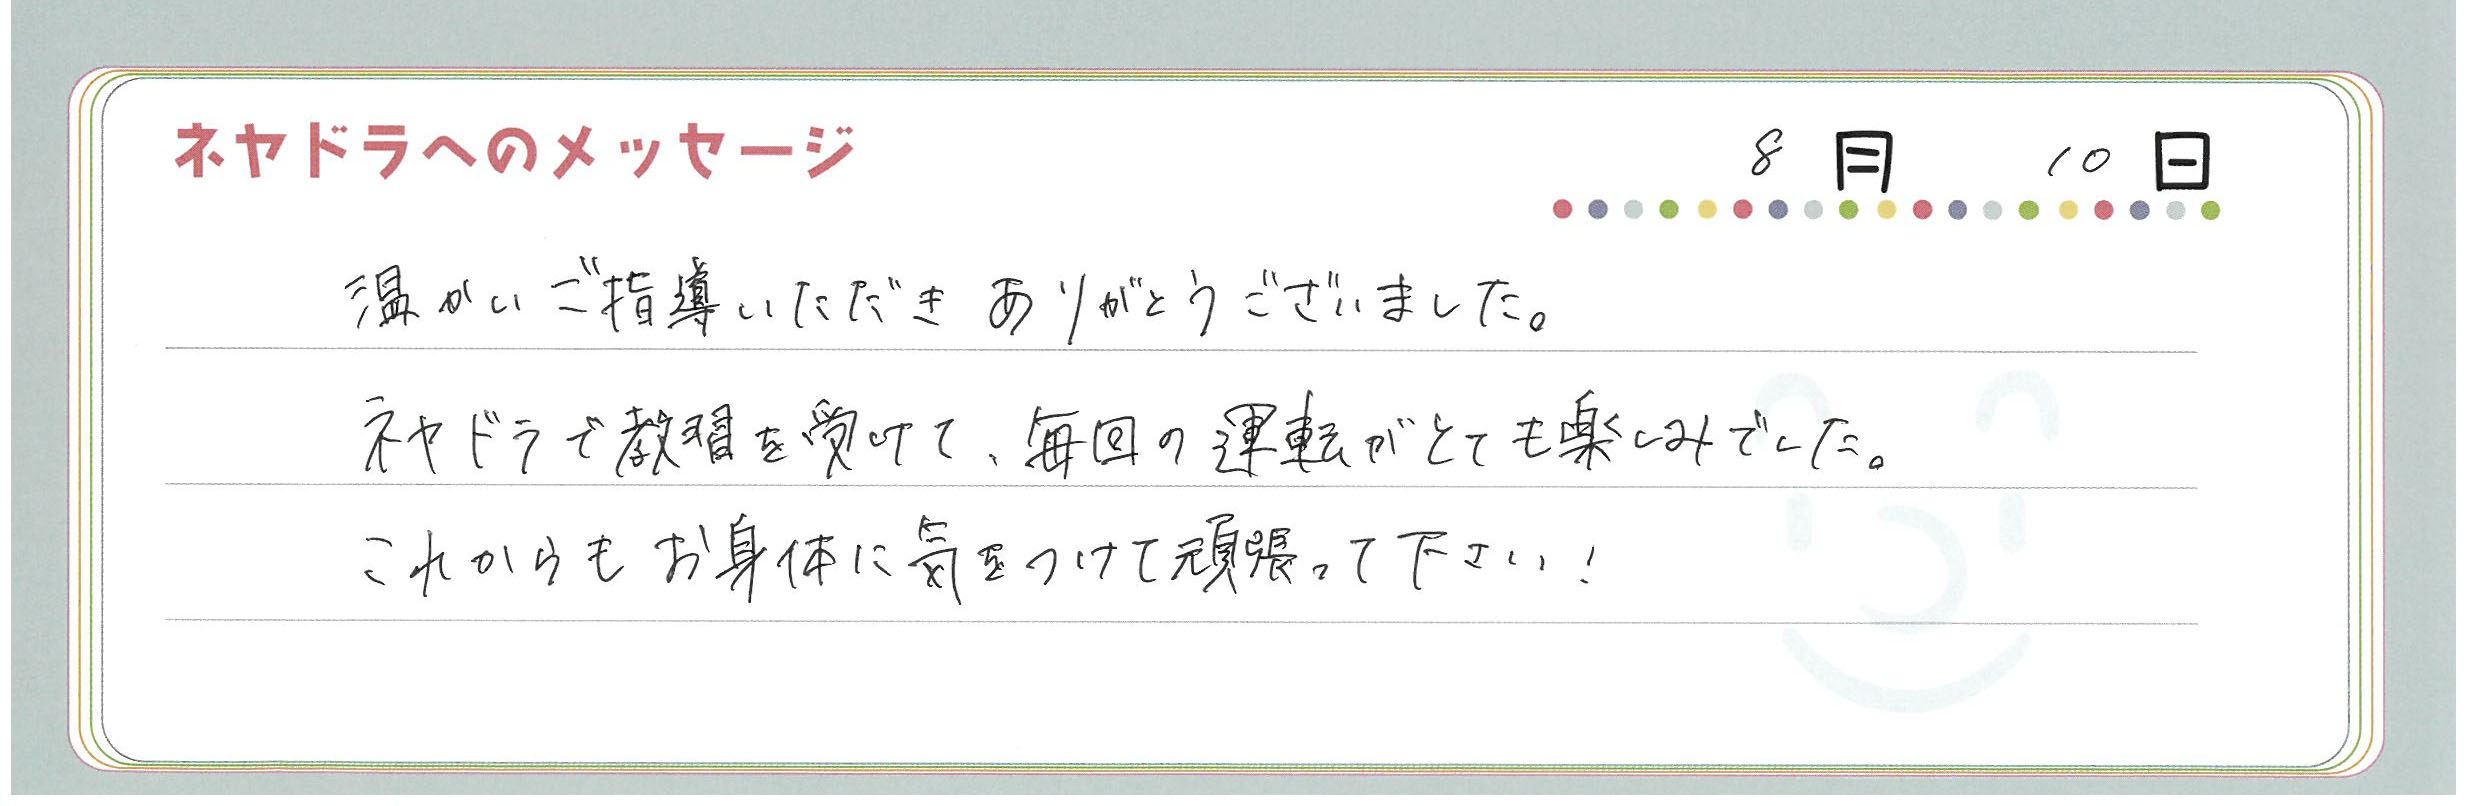 ネヤドラへのメッセージ 8月 10日
温かいご指導いただき ありがとうございました。
ネヤドラで教習を受けて、毎回の運転がとても楽しみでした。
これからもお身体に気をつけて頑張って下さい!